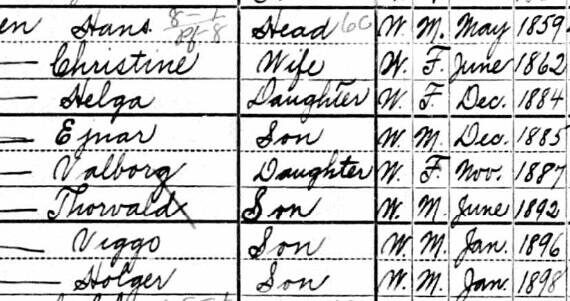 en Hans Head W. M. May 1859
— Christine Wife W. F. June 1862
— Helga Daughter W. F. Dec. 1884
— Ejnar Son W. M. Dec. 1885
— Valborg Daughter W. F. Nov. 1887
— Thorvald Son W. M. June 1892
— Viggo Son W. M. Jan. 1896
— Holger Son W. M. Jan. 1898